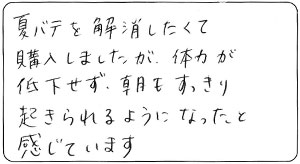 夏バテを解消したくて
購入しましたが、体力が
低下せず、朝もすっきり
起きられるようになったと
感じています